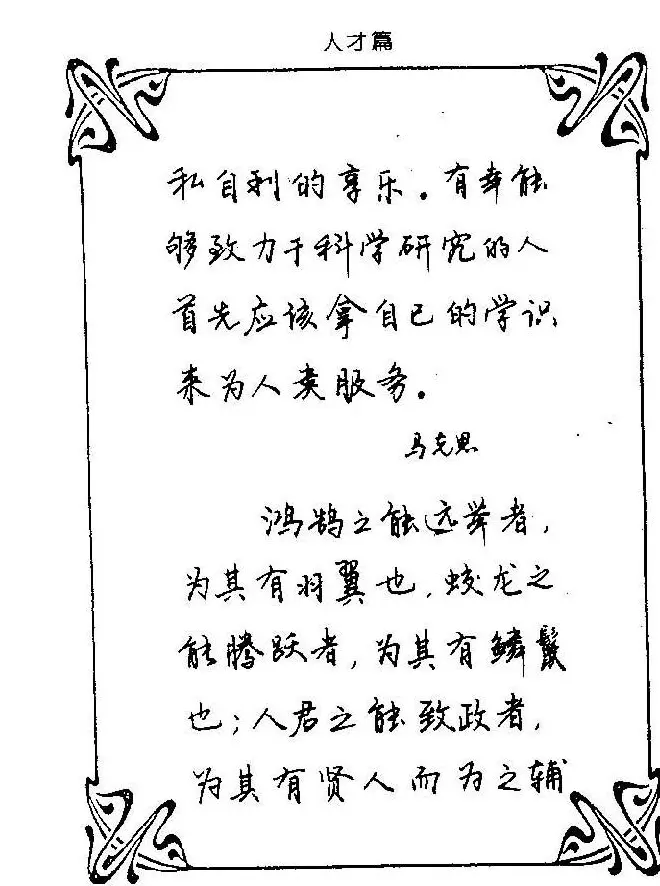 人才篇
私自利的享乐。有幸能
够致力于科学研究的人
首先应该拿自己的学识
来为人类服务。
马克思
鸿鹄之能远举者，
为其有羽翼也，蛟龙之
能腾跃者，为其有鳞鬣
也；人君之能致政者，
为其有贤人而为之辅